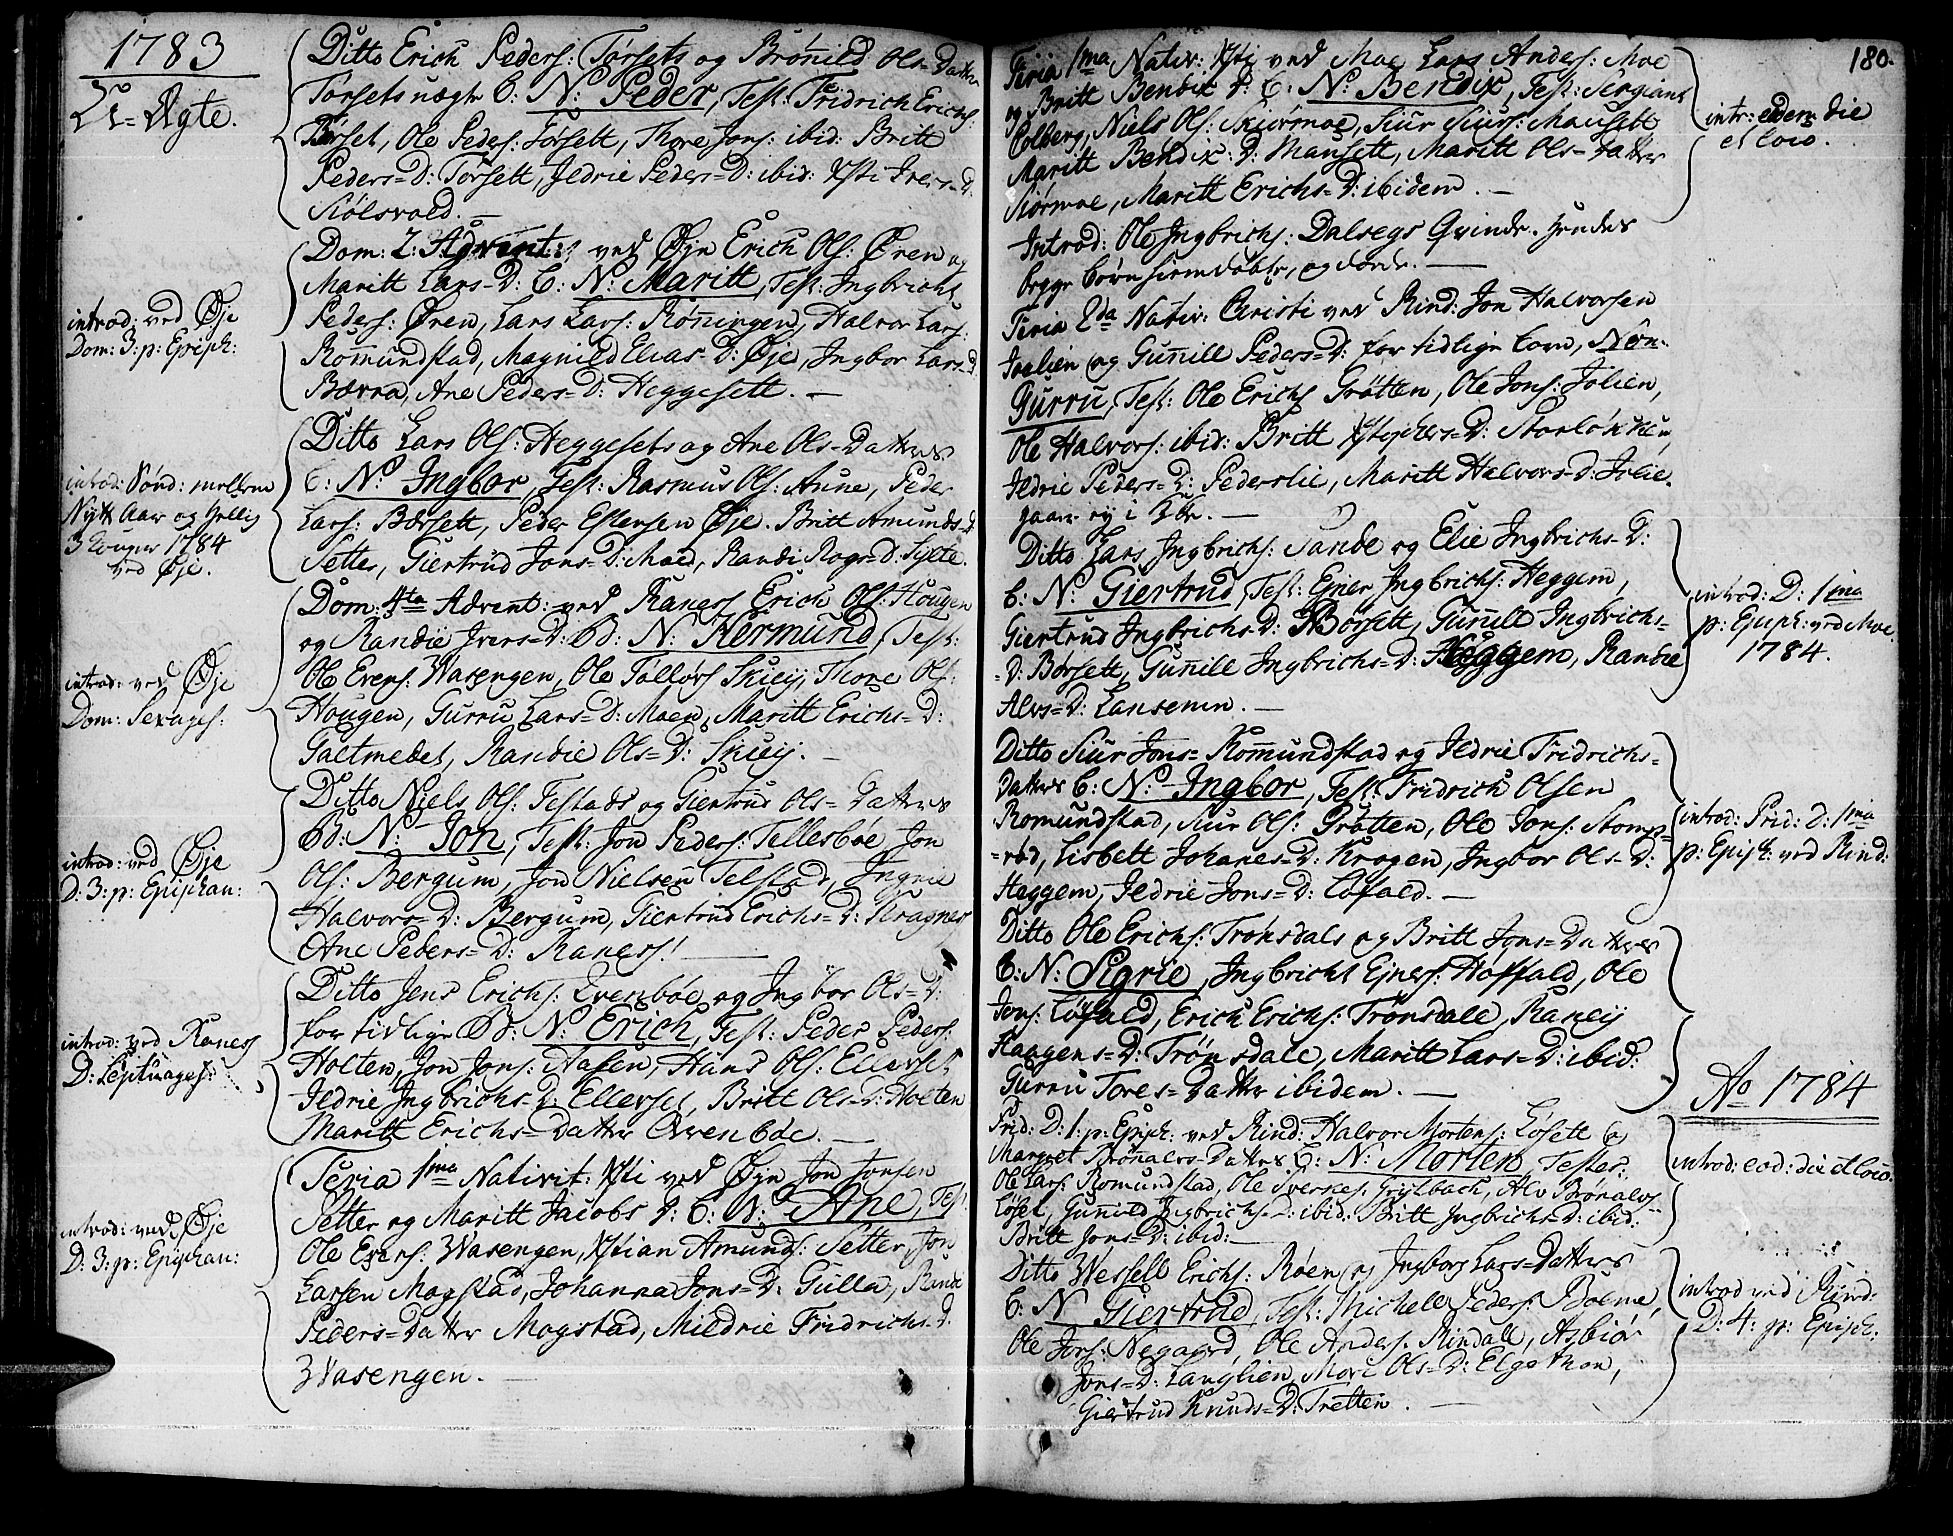 1783
U-Ægte.
Ditto Erich Peders: Tørsets og Brønild Ols-Datter
Torsets uægte B: N: Peder, Test: Fridrich Erichs:
Tørset, Ole Peders: Tørsett, Thore Jons: ibid: Britt
Peders=D: Tørsett, Jldrie Peders=D: ibid: Xsti Ivers=D:
Siølsvold.
Dom: 2: Advent: ved Øye Erich Ols: Øren og
Maritt Lars=D: B: N: Maritt, Test: Ingbricht
Peders: Øren, Lars Lars: Rønningen, Halvor Lars:
Romundstad, Magnild Elias=D: Øje, Ingbor Lars=D:
Bærra, Ane Peders=D: Heggesett.
introd: ved Øje
Dom: 3: p: Epiph:
Ditto Lars Ols: Heggesets og Ane Ols=Datters
B: N: Ingbor, Test: Rasmus Ols: Aune, Peder
Lars: Bærsett, Peder Estensen Øje. Britt Amunds=D:
Setter, Giertrud Jons=D: Moed, Randi Rogr=D: Sylte.
introd: Sønd: mellem
Nytt Aar og hellig
3 Konger 1784
ved Øje.
Dom: 4ta Advent: ved Ranes Erich Ols: Hougen
og Randie Ivers=D: Bd: N: Hermund, Test:
Ole Evens: Wasengen, Ole Tølløfs Skiej, Thore Ols:
Hougen, Gurru Lars=D: Moen, Maritt Erichs=D:
Galtmedet, Randie Ols=D: Skiej.
introd: ved Øje
Dom: Sexages:
Ditto Niels Ols: Testads og Giertrud Ols=Datters
Bd: N: Jon, Test: Jon Peders: Tellesbøe, Jon
Ols: Bergum, Jon Nielsen Telstad, Ingrie
Halvors=D: Bergum, Giertrud Erichs=D: Kragnes
Ane Peders=D: Ranes!
introd: ved Øje
D: 3: p: Epiphan:
Ditto Jens Erichs: Evenbøe og Ingbor Ols=D:
for tidlige Bd: N: Erich, Test: Peder Peders:
Holten, Jon Jons: Aasen, Hans Ols: Ellevset
Jldrie Ingbrichs=D: Ellevset, Britt Ols=D: Holten
Maritt Erichs=Datter Evenbøe.
introd: ved Ranes
D: Septuages:
Feria 1ma Nativit: Xsti ved Øye Jon Jonsen
Setter og Maritt Jacobs D: B: N: Ane, Test
Ole Evens: Wasengen, Xstian Amunds: Setter, Jon
Larsen Mogstad, Johanna Jons=D: Gulla, Randi
Peders=Datter Mogstad, Mildrie Fridrichs=D:
Wasengen.
introd: ved Øje
D: 3: p: Epiphan:
180.
Feria 1ma Nativ: Xsti ved Moe Lars Anders: Moe
og Britt Bendix D: B: N: Bendix, Test: Sergiant
Colberg, Niels Ols: Skiørmoe, Siur Siurs: Mausett
Maritt Bendix: D: Mausett, Maritt Ols=Datter
Siørmoe, Maritt Erichs=D: ibidem.
intr: eadem die
et loco.
Introd: Ole Ingbrichs: Dalsegs Qvinde. hendes
begge børn hiemdøbte, og døde.
Feria 2da Nativ: Christi ved Rind: Jon Halvorsen
Joelien og Gunnill Peders=D: for tidlige barn, Nom.
Gurru, Test: Ole Erichs Grøtten, Ole Jons: Jolien,
Ole Halvors: ibid: Britt Xstophers=D: Storløkken,
Jldrie Peders=D: Pederslie, Maritt Halvors=D: Jolie.
Ditto Lars Ingbrichs: Sande og Elie Ingbrichs=D:
B: N: Giertrud, Test: Ejner Ingbrichs: Heggem,
Giertrud Ingbrichs=D: Børsett, Gunill Ingbrichs=
=D: Børsett, Gunill Ingbrichs=D: Heggem, Randie
Alvs=D: Lansemm.
introd: D: 1ma
p: Epiph: ved Moe.
1784.
Ditto Siur Jons= Romundstad og Jldrie Fridrichs=
Datters B: N: Ingbor, Test: Fridrich Olsen
Romundstad, Siur Ols: Grøtten, Ole Jons: Stomp=
=rød, Lisbett Johanes=D: Krogen, Ingbor Ols=D:
Heggem, Jldrie Jons=D: Løfald.
introd: Prid: D: 1ma
p: Epiph: ved Rind:
Ditto Ole Erichs: Trønsdals og Britt Jons=Datters
B: N: Sigrie, Ingbricht Ejners: Hoffald, Ole
Jons: Løfald, Erich Erichs: Trønsdale, Raneij
Haagens=D: Trønsdale, Maritt Lars=D: ibid:
Gurru Tores=Datter ibidem.
Ao 1784
Prid: D: 1: p: Epiph: ved Rind: Halvor Mortens: Løsett og
Margret Brønalvs=Datters B: N: Morten, Testes:
Ole Lars: Romundstad, Ole Sverkes: Grytbach, Alv Brønalvs
Løset, Gunild Ingbrichs=D: ibid: Britt Ingbrichs=D: ibid:
Britt Jons=D: ibid:
introd: eod: die et loco.
Ditto Wessell Erichs: Røen og Ingborg Lars=Datters
B: N Giertrud, Test: Michell Peders: Bolme,
Ole Jons: Negaard, Ole Anders: Rindall, Asbiør
Jons=D: Langlien, Mari Ols=D: Elgethon,
Giertrud Knuds=D: Tretten.
introd ved Rind:
D: 4: p: Epiph: